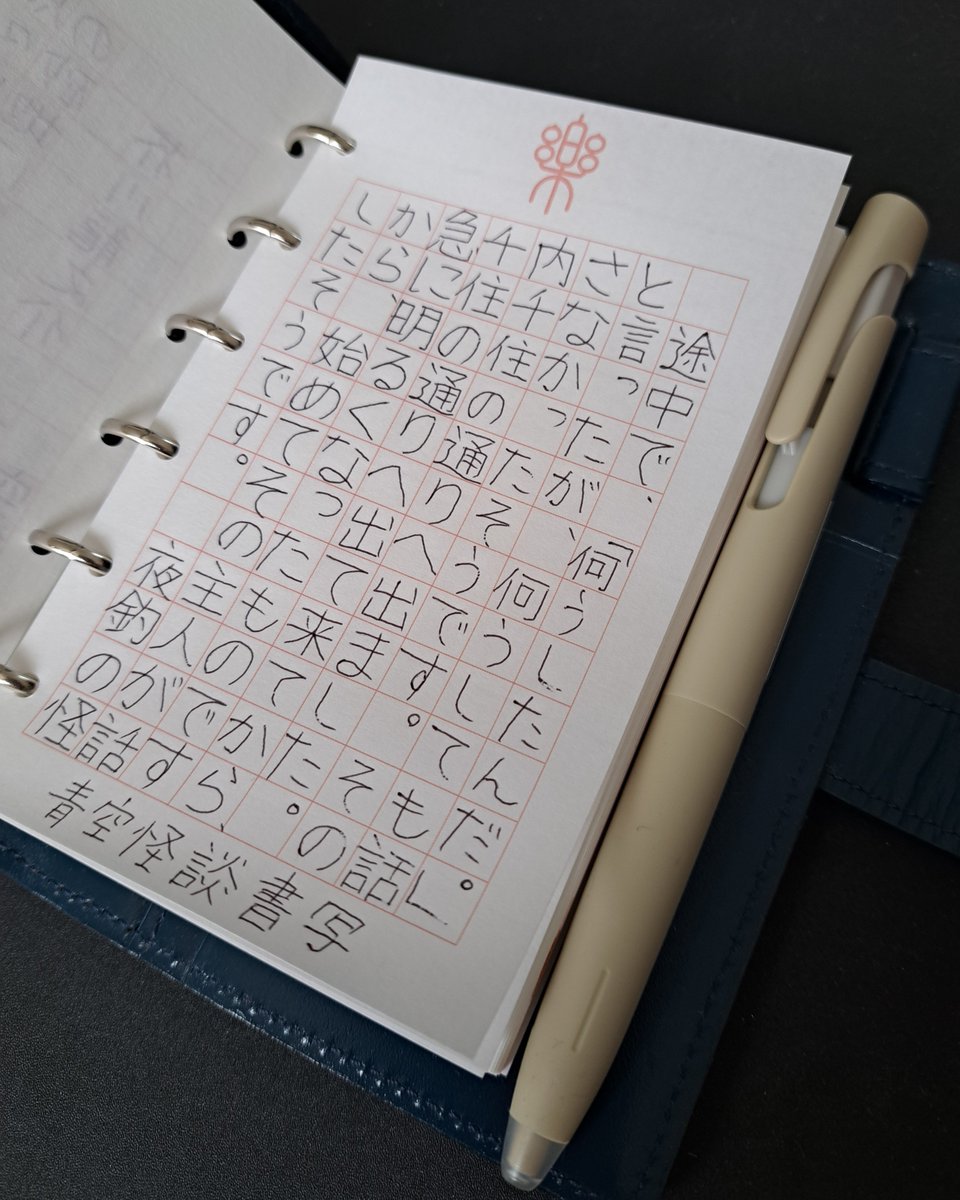 途中で、「何うしたんだ。」
と言ったが、何うしても話
さなかったそうです。その
内千住の通りへ出ました。
千住の通りへ出て来てから、
急に明るくなったものです
から始めてその主人が話
したそうです。夜釣の怪
青空怪談書写
樂